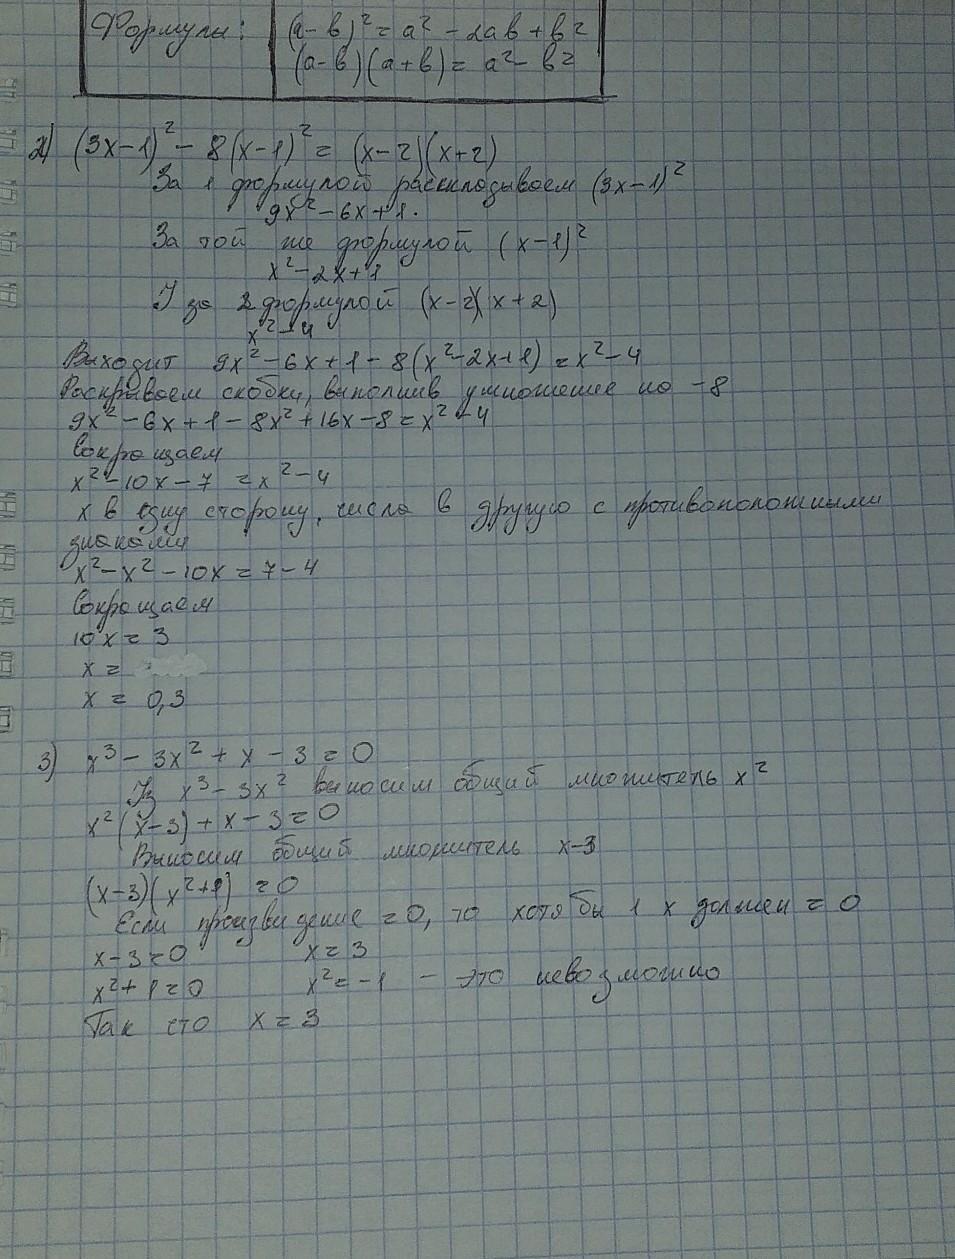 Формулы: (а-в)² = а² - 2ав + в²
(а-в)(а+в) = а² - в²
2) (3x-1)² - 8(x-1)² = (x-2)(x+2)
За 1 формулой раскладываем (3x-1)²
9x² - 6x + 1.
За той же формулой (x-1)²
x² - 2x + 1
І за 2 формулой (x-2)(x+2)
x² - 4
Выходит 9x² - 6x + 1 - 8(x² - 2x + 1) = x² - 4
Раскрываем скобки, выполнив умножение на -8
9x² - 6x + 1 - 8x² + 16x - 8 = x² - 4
Сокращаем
x² - 10x - 7 = x² - 4
x в одну сторону, числа в другую с противоположными
знаками
x² - x² - 10x = 7 - 4
Сокращаем
10x = 3
x =
x = 0,3
3) x³ - 3x² + x - 3 = 0
Із x³ - 3x² выносим общий множитель x²
x²(x-3) + x - 3 = 0
Выносим общий множитель x-3
(x-3)(x²+1) = 0
Если произведение = 0, то хотя бы 1 x должен = 0
x - 3 = 0 x = 3
x² + 1 = 0 x² = -1 - это невозможно
Так что x = 3